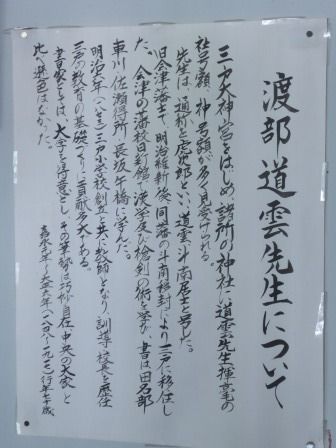 渡部道雲先生について
三戸大神宮をはじめ諸所の神社に道雲先生揮毫の
社号額、神号額が多く見受けられる。
先生は、通称を虎次郎といい、道雲、斗南居士と号した。
旧会津藩士で、明治維新後同藩の斗南移封により三戸に移住し
た。会津の藩校日新館で漢学及び槍剣の術を学び、書は田名部
車川、佐瀬得所、長坂午橋に学んだ。
明治六年(一八七三)三戸小学校創立と共に教師となり、訓導、校長を歴任
三戸の教育の基礎づくりに貢献多大である。
書家としては、大字を得意とし、その筆勢は巧妙自在、中央の大家と
比べ遜色はなかった。